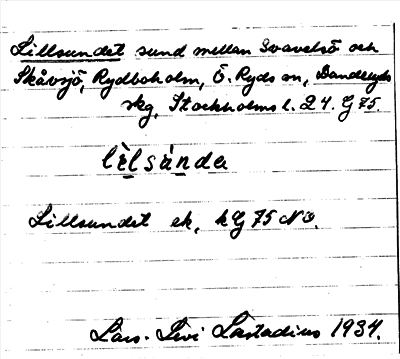 Lillsundet sund mellan Svavelsö och
Skåvsjö, Rydboholm, Ö. Ryds sn, Danderyds
skg, Stockholms l. 24. G 75.
lèlsánda
Lillsundet ek, kG 75 NO.
Lars-Levi Læstadius 1934.